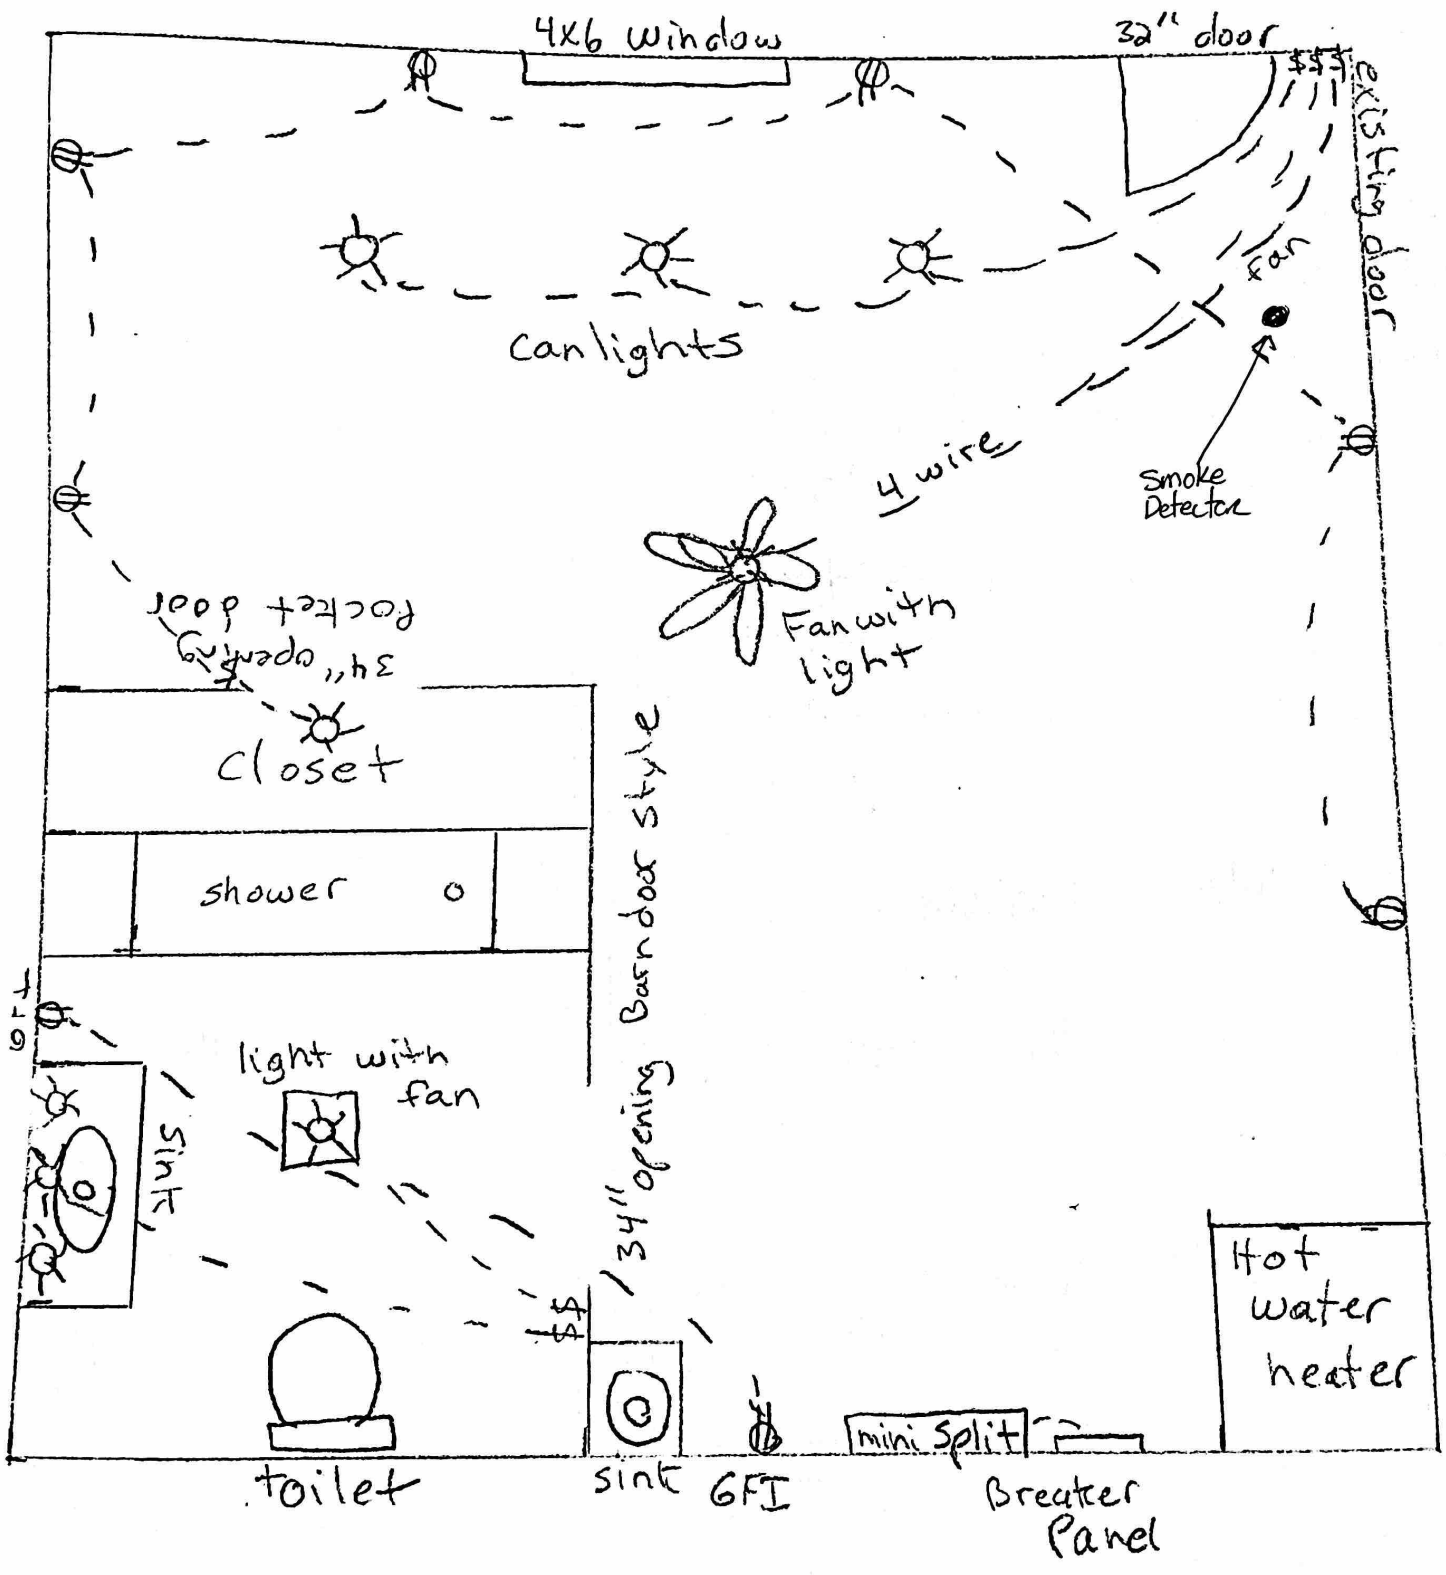 4x6 window
32" door
$ $ $
existing door
fan
can lights
4 wire
Smoke
Detector
Fan with
light
34" opening
Pocket door
Closet
34" opening Barndoor style
shower
GFI
light with
fan
sink
$
$
Hot
water
heater
mini split
toilet
sink
GFI
Breaker
Panel